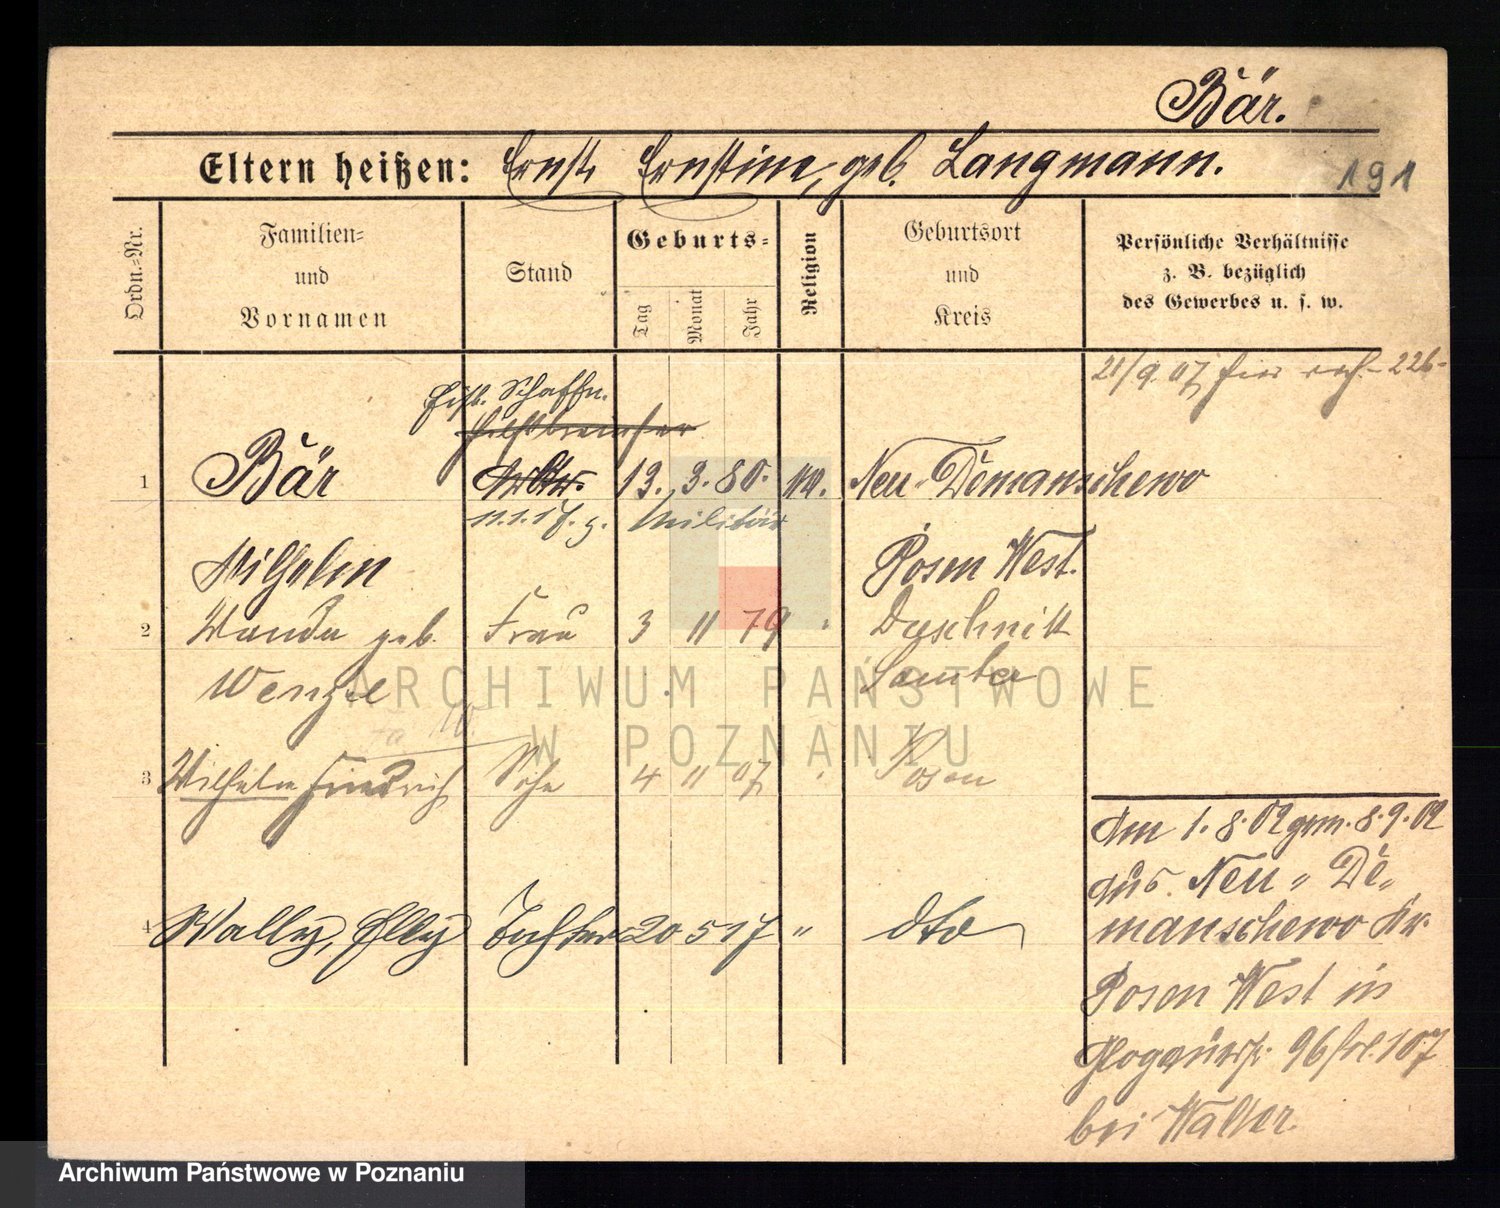 Bär.
Eltern heißen: Ernst Ernstine, geb. Langmann.
191
Ordn.-Nr.
Familien-
und
Vornamen
Stand
Geburts-
Tag
Monat
Jahr
Religion
Geburtsort
und
Kreis
Persönliche Verhältnisse
z. B. bezüglich
des Gewerbes u. s. w.
21/9. 07
226
Schaffn.
1 Bär 13. 3. 80. Neu Demanschewo
11.1.17. z. Militär
Wilhelm Posen West.
2 Wanda geb. Frau 3 11 79 "
Wenzel
3 Wilhelm Friedrich Sohn 4 11 07 " Posen
4 Wally, Elly Tochter 20 5 17 " dto
Am 1. 8. 02 gem. 8. 9. 02
aus Neu "De"
manschewo Kr.
Posen West in
96 107
bei Walter.
ARCHIWUM PAŃSTWOWE
W POZNANIU
Archiwum Państwowe w Poznaniu